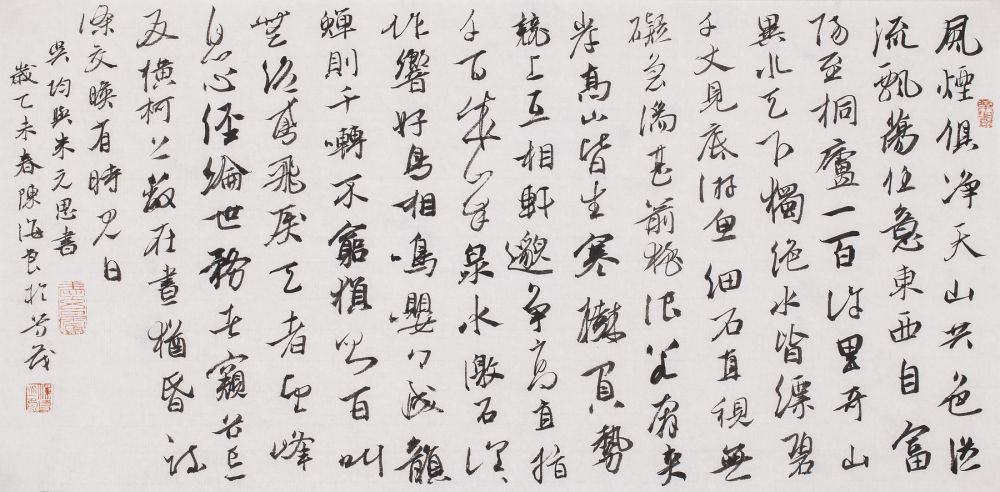 風煙俱淨天山共色從
流飄蕩任意東西自富
陽至桐廬一百許里奇山
異水天下獨絕水皆縹碧
千丈見底游魚細石直視無
礙急湍甚箭猛浪若奔夾
岸高山皆生寒樹負勢
競上互相軒邈爭高直指
千百成峯泉水激石泠泠
作響好鳥相鳴嚶嚶成韻
蟬則千囀不窮猿則百叫
無絕鳶飛戾天者望峰
息心經綸世務者窺谷忘
反橫柯上蔽在晝猶昏疏
條交暎有時見日
吳均與朱元思書
歲乙未春陳海良於